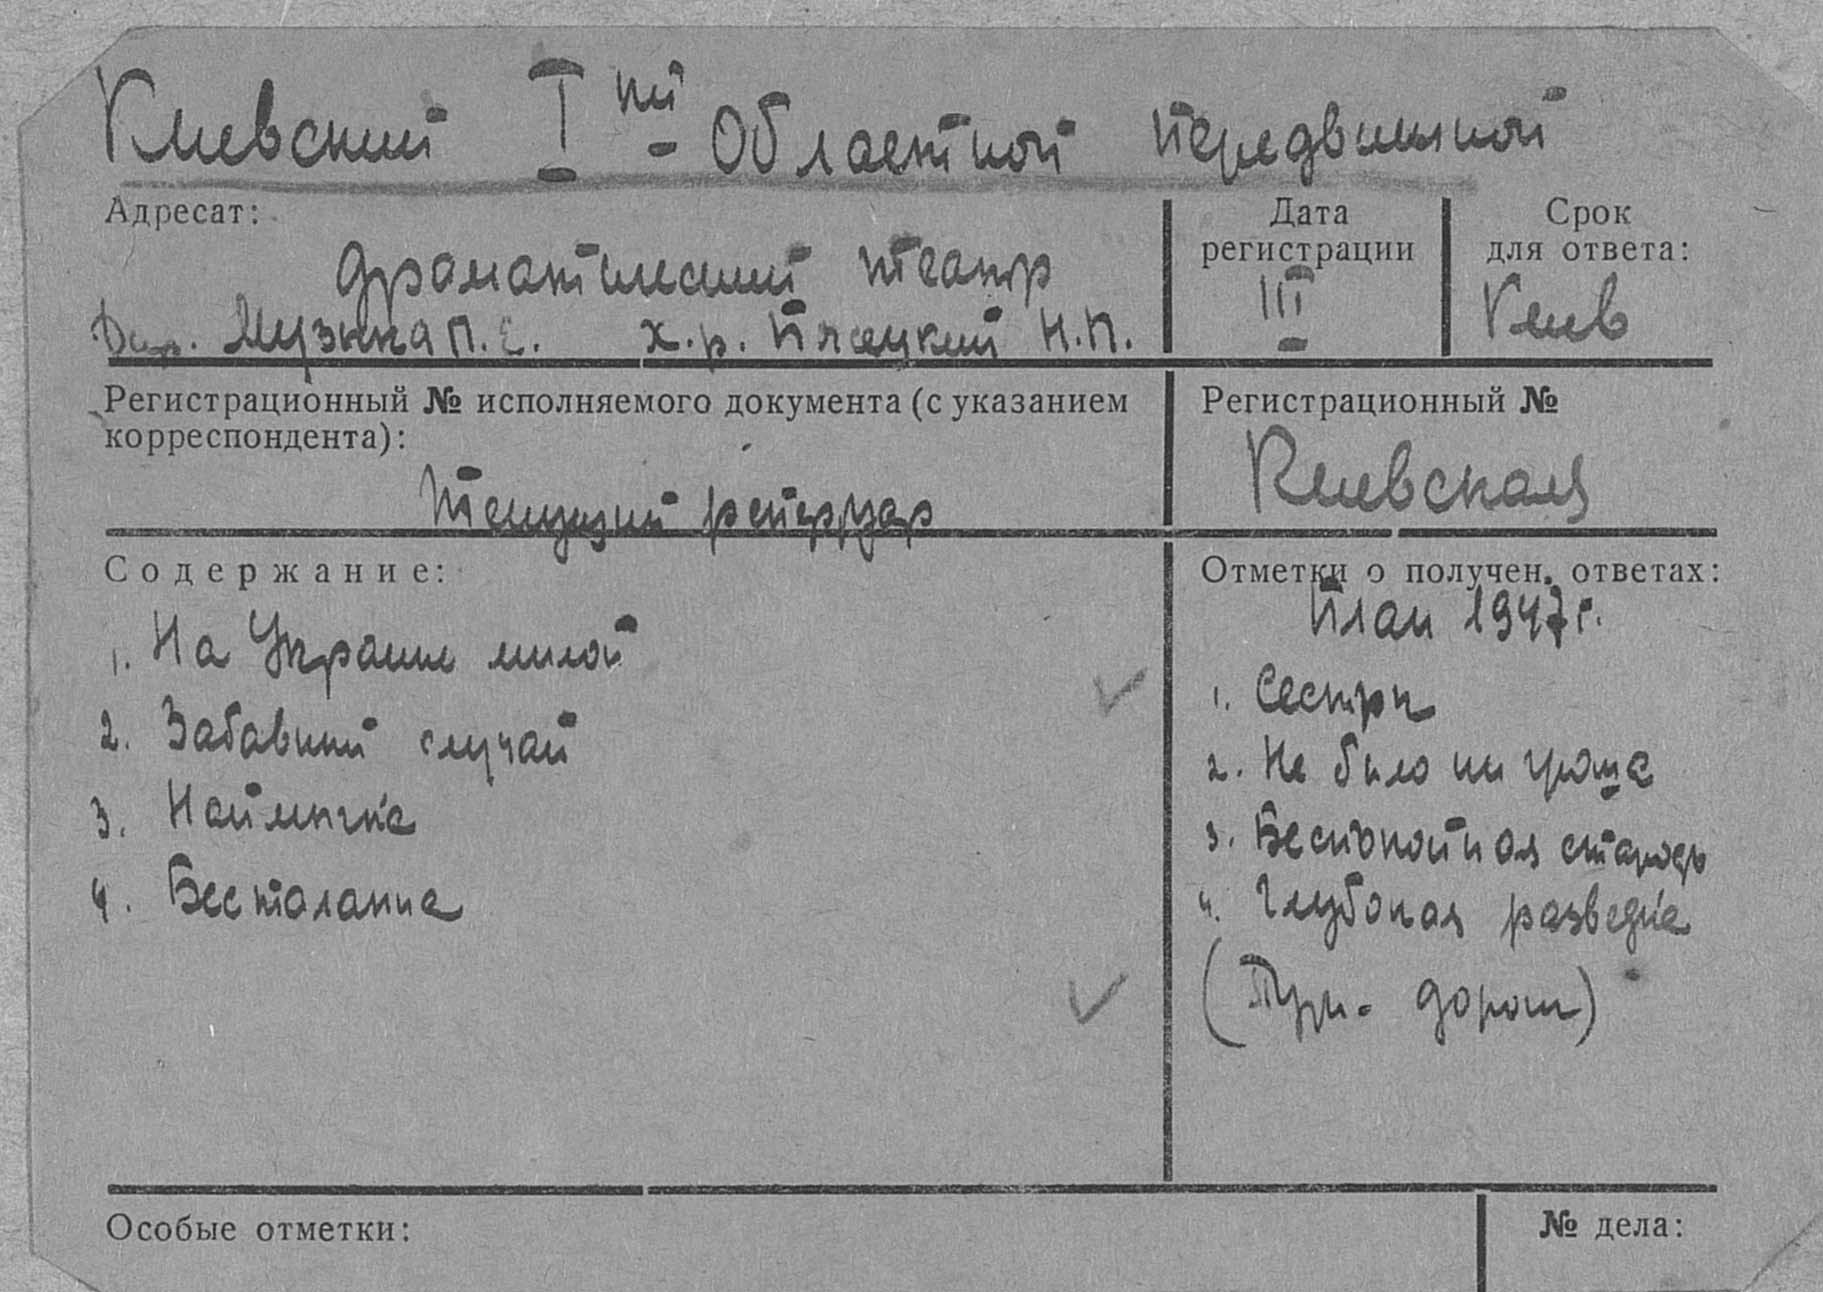 Киевский I ый - Областной передвижной
Адресат:
Дата регистрации
Срок для ответа:
драматический театр
III
Киев
Дир. Музыка П. Е. х.р. Пясецкий Н.П.
Регистрационный № исполняемого документа (с указанием
корреспондента):
Регистрационный №
Киевская
Текущий
Содержание:
Отметки о получен. ответах:
План 1947 г.
1. На Украине милой
2. Забавный случай
3. Наймичка
4. Бесталанна
1. Сестры
2. Не было ни гроша
3. Беспокойная старость
4. Глубокая разведка
Особые отметки:
№ дела: